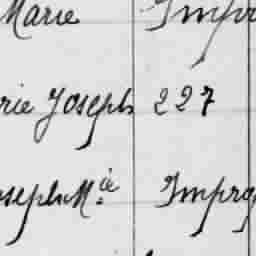 Marie Impr
rie Joseph 227
oseph Mie Impr